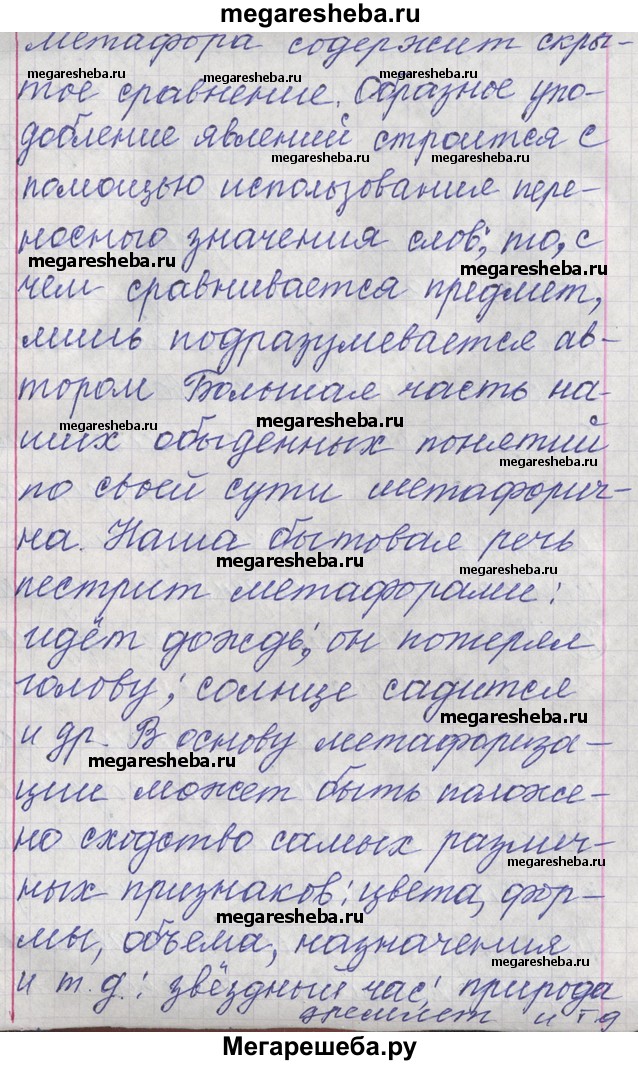 megaresheba.ru
метафора содержит скры-
megaresheba.ru
megaresheba.ru
тое сравнение. Образное упо-
megaresheba.ru
добление явлений строится с
megaresheba.ru
помощью использования пере-
носного значения слов; то, с
megaresheba.ru
megaresheba.ru
чем сравнивается предмет,
лишь подразумевается ав-
тором Большая часть на-
megaresheba.ru
megaresheba.ru
ших обыденных понятий
megaresheba.ru
по своей сути метафорич-
на. Наша бытовая речь
megaresheba.ru
megaresheba.ru
пестрит метафорами:
идёт дождь; он потерял
голову; солнце садится
megaresheba.ru
и др. В основу метафориза-
megaresheba.ru
ции может быть положе-
но сходство самых различ-
megaresheba.ru
ных признаков: цвета, фор-
megaresheba.ru
мы, объема, назначения
megaresheba.ru
и т.д.: звёздный час; природа
дремлет и т.д
Мегарешеба.ру